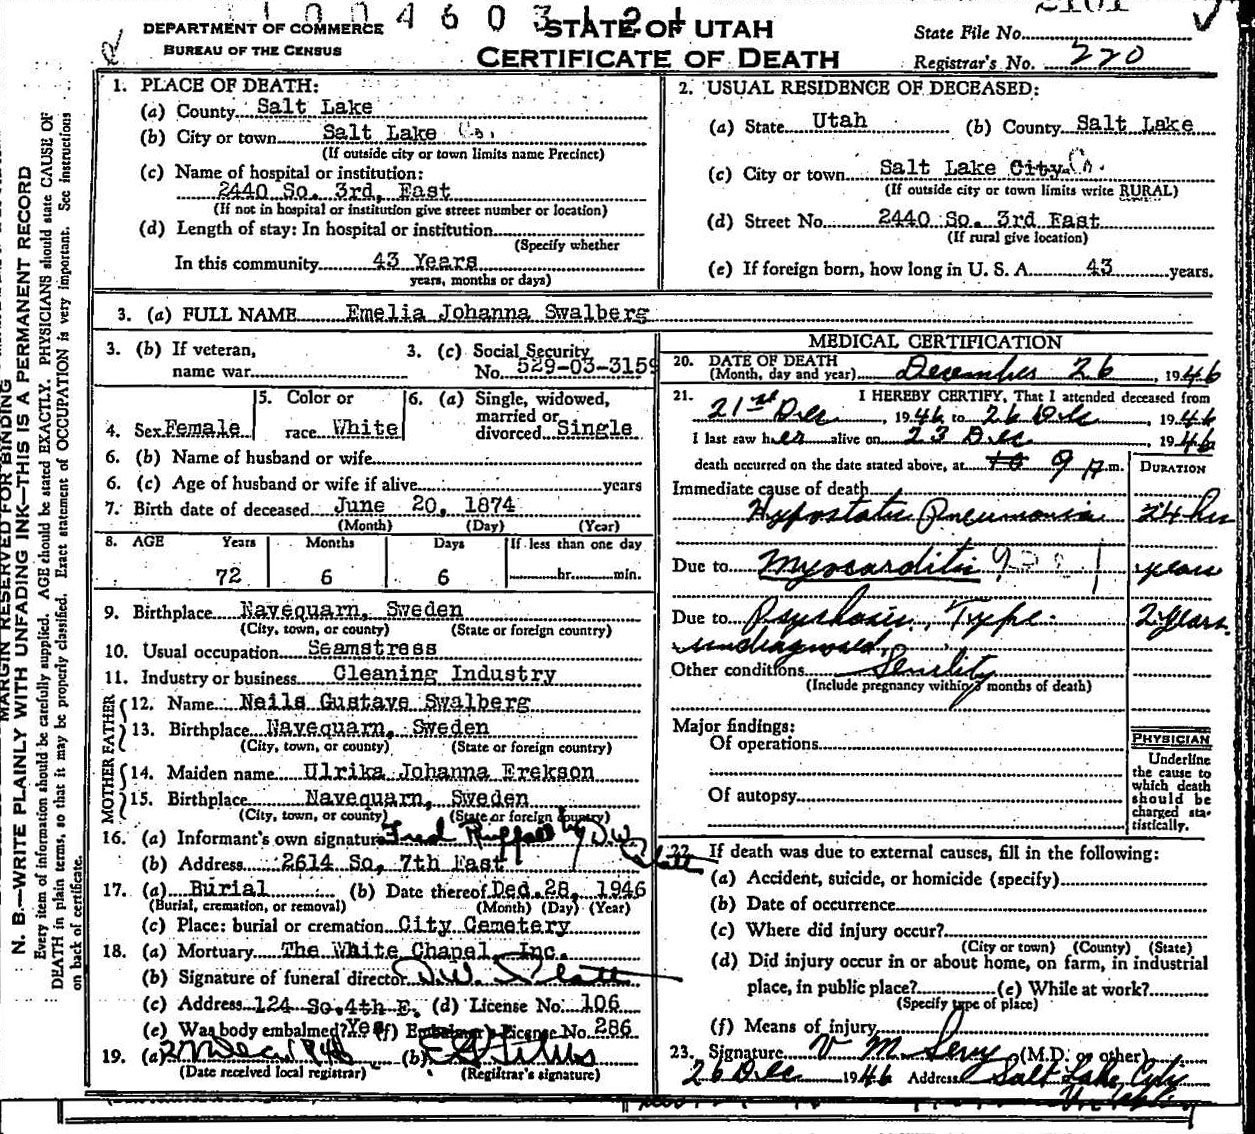 1004603 121
2101
DEPARTMENT OF COMMERCE
BUREAU OF THE CENSUS
STATE OF UTAH
CERTIFICATE OF DEATH
State File No.
Registrar's No. 220
MARGIN RESERVED FOR BINDING
N. B.—WRITE PLAINLY WITH UNFADING INK—THIS IS A PERMANENT RECORD
Every item of information should be carefully supplied. AGE should be stated EXACTLY. PHYSICIANS should state CAUSE OF
DEATH in plain terms, so that it may be properly classified. Exact statement of OCCUPATION is very important. See instructions
on back of certificate.
1. PLACE OF DEATH:
(a) County Salt Lake
(b) City or town Salt Lake Co.
(If outside city or town limits name Precinct)
(c) Name of hospital or institution:
2440 So. 3rd, East
(If not in hospital or institution give street number or location)
(d) Length of stay: In hospital or institution
(Specify whether
In this community 43 Years
years, months or days)
2. USUAL RESIDENCE OF DECEASED:
(a) State Utah (b) County Salt Lake
(c) City or town Salt Lake City Co.
(If outside city or town limits write RURAL)
(d) Street No. 2440 So. 3rd East
(If rural give location)
(e) If foreign born, how long in U. S. A. 43 years.
3. (a) FULL NAME Emelia Johanna Swalberg
3. (b) If veteran,
name war
3. (c) Social Security
No. 529-03-3159
4. Sex Female
5. Color or
race White
6. (a) Single, widowed,
married or
divorced Single
6. (b) Name of husband or wife
6. (c) Age of husband or wife if alive years
7. Birth date of deceased June 20, 1874
(Month) (Day) (Year)
8. AGE Years Months Days If less than one day
72 6 6 hr. min.
9. Birthplace Navequarn, Sweden
(City, town, or county) (State or foreign country)
10. Usual occupation Seamstress
11. Industry or business Cleaning Industry
FATHER
12. Name Neils Gustave Swalberg
13. Birthplace Navequarn, Sweden
(City, town, or county) (State or foreign country)
MOTHER
14. Maiden name Ulrika Johanna Erekson
15. Birthplace Navequarn, Sweden
(City, town, or county) (State or foreign country)
16. (a) Informant's own signature Fred by D.W.
(b) Address 2614 So, 7th East
17. (a) Burial (b) Date thereof Ded.28, 1946
(Burial, cremation, or removal) (Month) (Day) (Year)
(c) Place: burial or cremation City Cemetery
18. (a) Mortuary The White Chapel, Inc.
(b) Signature of funeral director D.W.
(c) Address 124 So.4th E. (d) License No. 106
(e) Was body embalmed? Yes (f) Embalmer's License No. 286
19. (a) 27 Dec 1946 (b)
(Date received local registrar) (Registrar's signature)
MEDICAL CERTIFICATION
20. DATE OF DEATH
(Month, day and year) December 26, 1946
21. I HEREBY CERTIFY, That I attended deceased from
21st Dec, 1946 to 26 Dec, 1946
I last saw her alive on 23 Dec, 1946
death occurred on the date stated above, at 10 9 A m.
DURATION
Immediate cause of death
Hypostatic Pneumonia 24 hrs
Due to Myocarditis years
Due to Psychosis, Type: 2 years.
undiagnosed.
Other conditions Senility
(Include pregnancy within 3 months of death)
Major findings:
Of operations
Of autopsy
PHYSICIAN
Underline
the cause to
which death
should be
charged sta-
tistically.
22. If death was due to external causes, fill in the following:
(a) Accident, suicide, or homicide (specify)
(b) Date of occurrence
(c) Where did injury occur?
(City or town) (County) (State)
(d) Did injury occur in or about home, on farm, in industrial
place, in public place? (e) While at work?
(Specify type of place)
(f) Means of injury
23. Signature V M Sevy (M.D. or other)
26 Dec 1946 Address Salt Lake City
Utah